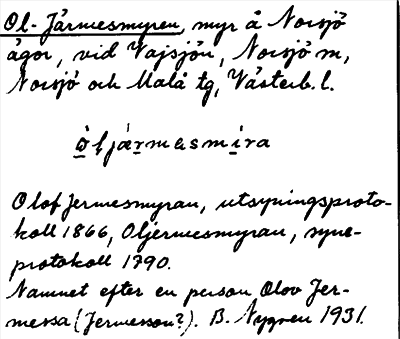 Ol-Järmesmyren, myr å Norsjö
ägor, vid Vajsjön, Norsjö sn,
Norsjö och Malå tg, Västerb. l.
ò̱ljä́ṟmesmi̱ra
Olof Jermesmyran, utsyningsproto-
koll 1866, Oljermesmyran, syne-
protokoll 1790.
Namnet efter en person Olov Jer-
messa (Jermesson?). B. Nygren 1931.